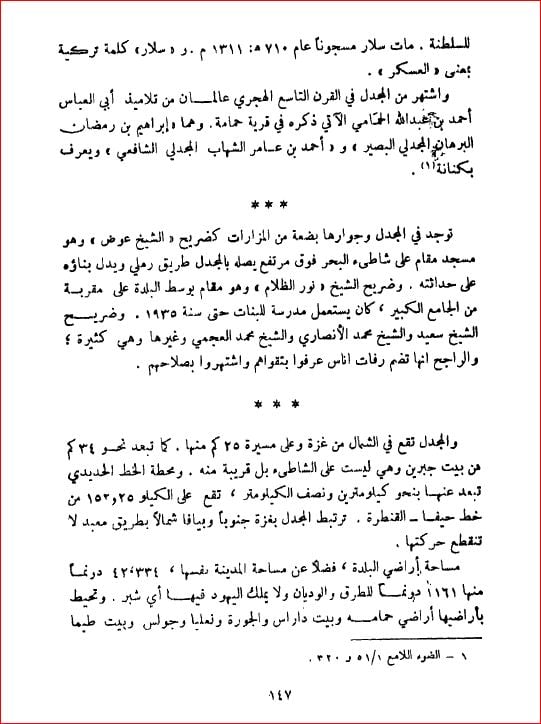 للسلطنة . مات سلار مسجوناً عام ٧١٠ هـ: ١٣١١ م . و « سلار » كلمة تركية
بمعنى « العسكر » .
واشتهر من المجدل في القرن التاسع الهجري عالمـان من تلاميذ أبي العباس
أحمد بن عبدالله الحمّامي الآتي ذكره في قرية حمامة. وهما «إبراهيم بن رمضان
البرهان المجدلي البصير » و « أحمد بن عـامر الشهاب المجدلي الشافعي » ويعرف
بكنانة (١) .
* * *
توجد في المجدل وجوارها بضعة من المزارات كضريح « الشيخ عوض » وهو
مسجد مقام على شاطىء البحر فوق مرتفع يصله بالمجدل طريق رملي ويدل بناؤه
على حداثته . وضريح الشيخ « نور الظلام » وهو مقام بوسط البلدة على مقربـة
من الجامع الكبير ، كان يستعمل مدرسة للبنات حتى سنة ١٩٣٥ . وضريـــح
الشيخ سعيد والشيخ محمد الأنصاري والشيخ محمد العجمي وغيرها وهي كثيرة ؛
والراجح انها تضم رفات اناس عرفوا بتقواهم واشتهروا بصلاحهم .
* * *
والمجدل تقع في الشمال من غزة وعلى مسيرة ٢٥ كم منها . كما تبعد نحـو ٣٤ كم
عن بيت جبرين وهي ليست على الشاطىء بل قريبة منه . ومحطة الخط الحديدي
تبعد عنهـا بنحو كيلومترين ونصف الكيلومتر ، تقع على الكيلو ١٥٣,٢٥ من
خط حيفـا ــ القنطرة . ترتبط المجدل بغزة جنوباً وبيافا شمالاً بطريق معبد لا
تنقطع حركتها .
مساحة أراضي البلدة ، فضلاً عن مساحة المدينة نفسها ، ٤٢,٣٣٤ دونمـاً
منها ١١٦١ دونمـــاً للطرق والوديان ولا يملك اليهود فيهــا أي شبر . وتحيط
بأراضيها أراضي حمامــه وبيت داراس والجورة ونعليا وجولس وبيت طيما
١ – الضوء اللامع ١/ ٥١ و ٣٢٠ .
١٤٧